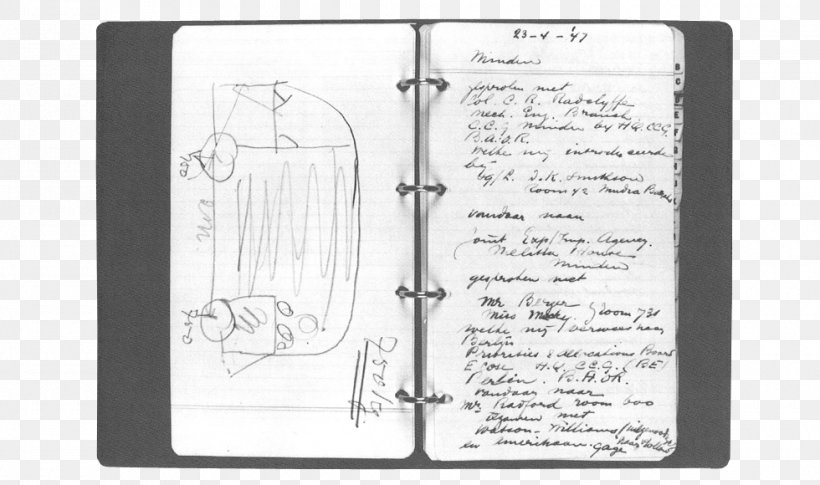 750
750
750 kg
23-4-'47
Minden
gesproken met
Col. C. R. Radclyffe
Mech. Eng. Branch
C.C.G. Minden by HQ. CCG.
B.A.O.R.
welke mij introduceerde
bij
Room 42 Mudra
vandaar naar
Joint Exp/Imp. Agency.
Melitta House
Minden
gesproken met
Mr Berger Room 73
Miss
welke mij verwees naar
Berlijn
Priorities & Allocations Board
Econ. H.Q. C.C.G. (BE)
Berlin. B.A.O.R.
vandaar naar
Mr Radford room 600
samen met
Watson-Williams
en Amerikaan. Gage
B
C
D
E
F